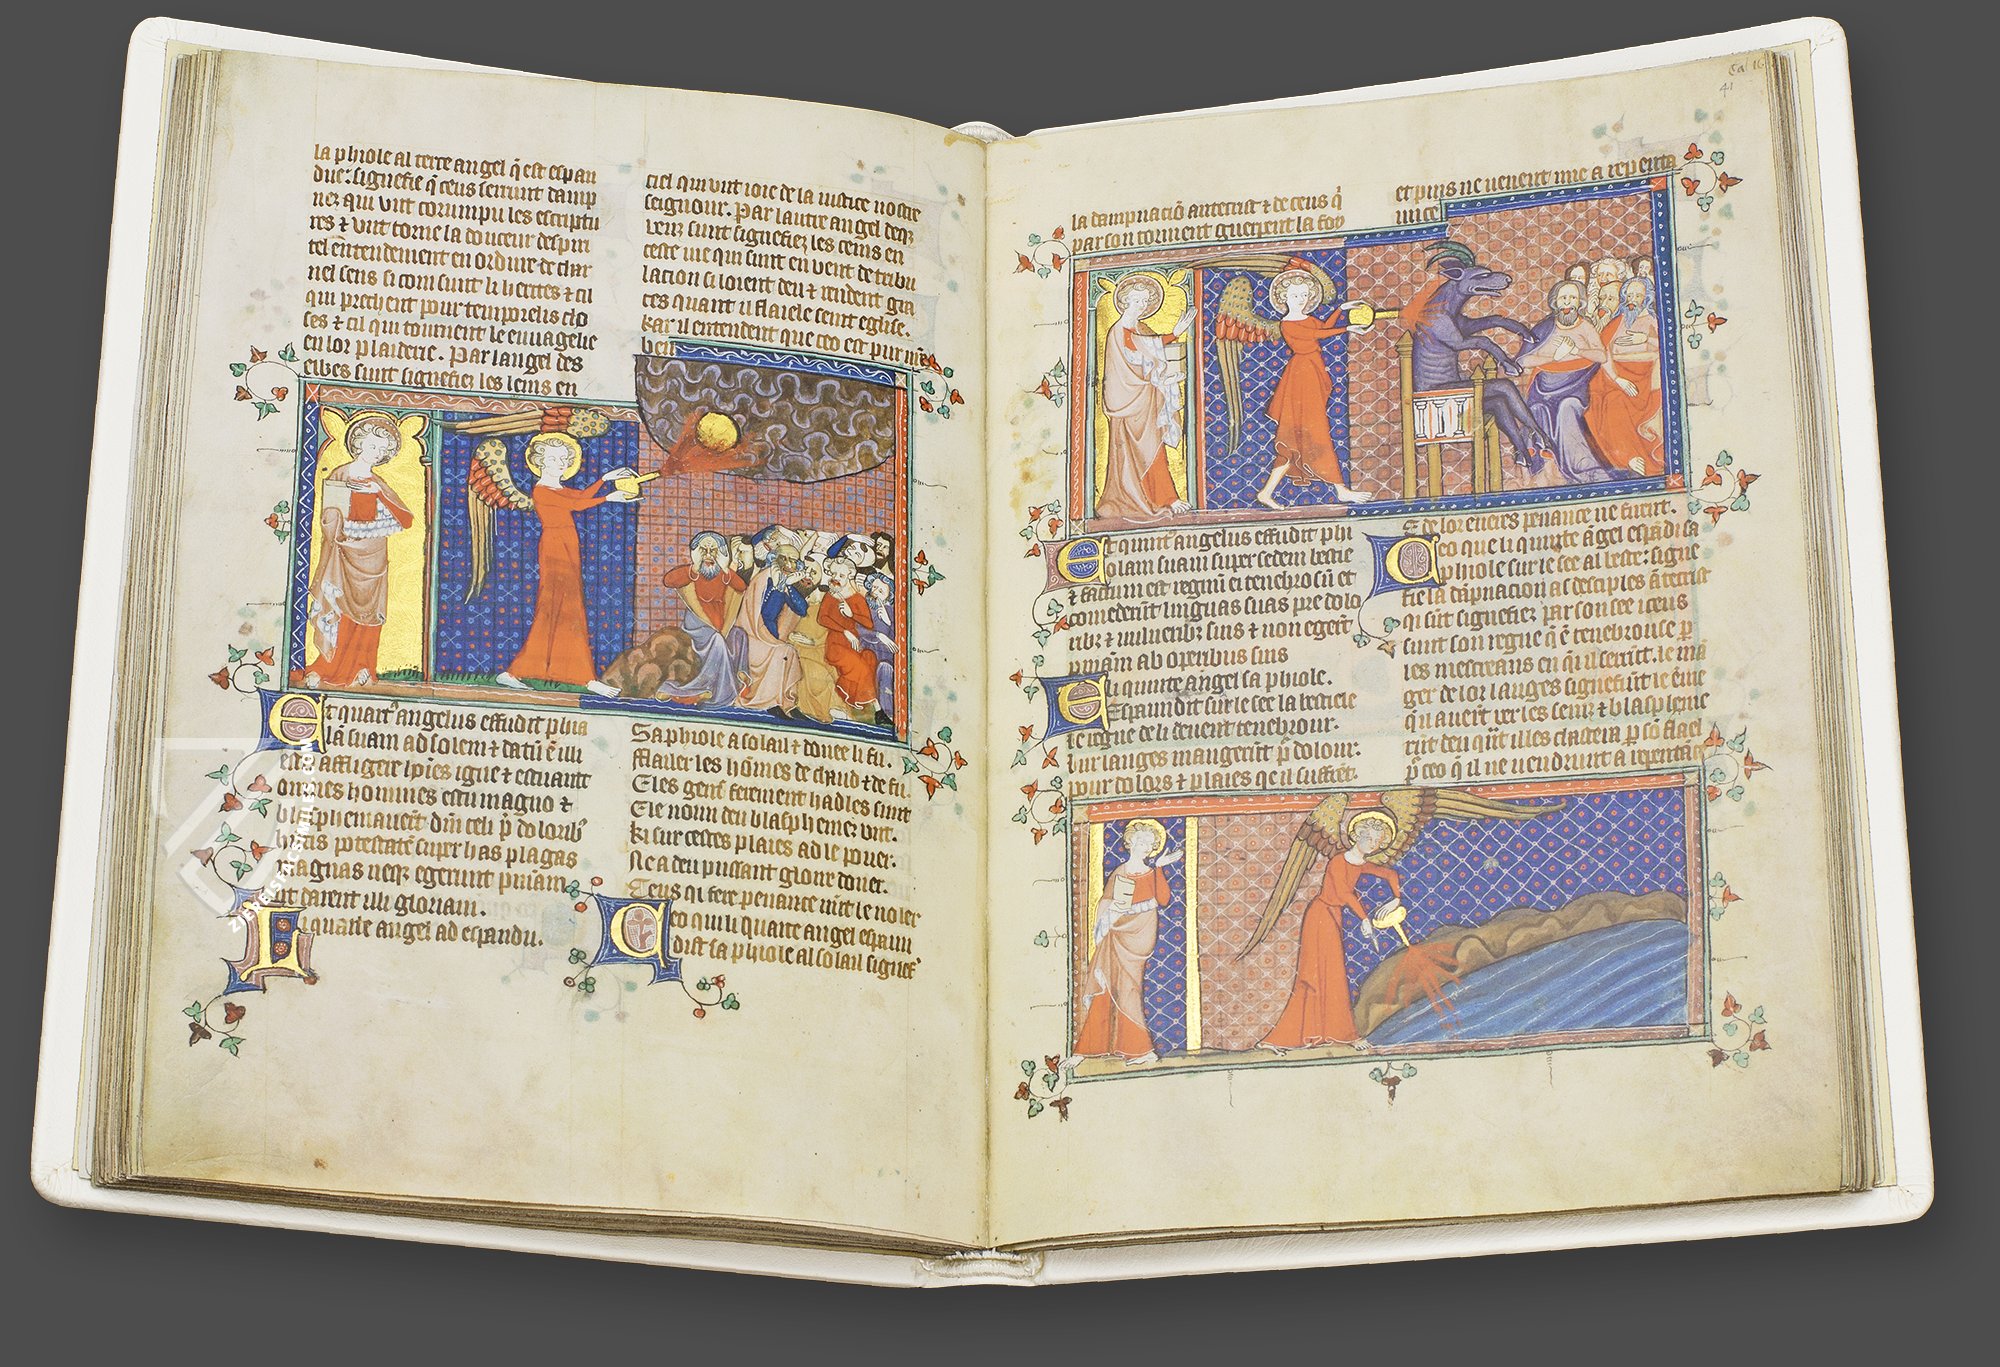 la phiole al terre angel q̄ est espan
due: signefie q̄ ceus serrunt damp
nez qui unt corumpu les escriptu
res & unt torne la douceur despiri
tel entendement en ordure de char
nel sens si com sunt li herites & cil
qui prechent pour temporeis cho
ses & cil qui tournent le euuagelie
en lor plaiderie. Par langel des
eiwes sunt signefiez les seins en
ciel qui unt ioie de la iustice nostre
seignour. Par lautre angel desz
sunt signefiez les seins en
ceste uie qui sunt en uent de tribu
lacion si loient deu & rendent gra
ces quant il flaiele seint eglise.
kar il entendent que ceo est pur
ben
Et quart' angelus effudit phia
lā suam ad solem & datū ē illi
affligere igne & estuauerūt
omnes homines estu magno &
blasphemauerūt dm̄ celi p̄ dolorib'
potestatē super has plagas
magnas neqz egerunt pn̄iam
ut darent illi gloriam.
Li quarte angel ad espandu.
Sa phiole a solail & donee li fu.
Flaeler les hōmes de chaud & de fu.
E les genz ferement hadles sunt
E le noun deu blasphemez unt.
Ki sur cestes plaies ad le pouer.
Ne a deu puissant gloire doner.
Ceus qi fere penance nunt le uoler
Ceo qui li quarte angel espaun
dist sa phiole al solail signef'
Ca 16
41
la dampnaciō antecrist & de ceus q̄
par son torment guerpent la foy
et puis ne uenent mie a repenta
nce
Et quint' angelus effudit phi
olam suam super sedem bestie
& factum est regnū ei tenebrosū et
comederūt linguas suas pre dolo
ribz & uulneribz suis & non egerūt
pn̄iam ab operibus suis
Li quinte angel sa phiole.
Espaundit sur le see la besticle
le regne de li deuent tenebrour.
lur langes mangerūt p̄ dolour.
pour dolors & plaies qe il suffrēt.
E de lor euers penance ne firent.
Ceo que li quinte āgel espādi sa
phiole sur le see al beste: signe
fie la dāpnacion as desciples ātecrist
qi sūt signefiez par son see & ceus
sunt son regne q̄ ē tenebrouse p̄
les mescreans en qi il serrūt. le mā
ger de lor langes signefiūt le
qil auerūt uer les seinz & blaspheme
rūt deu qn̄t il les chastera p̄ sō flael
p̄ ceo q̄ il ne uendrunt a repentāce
ZIEREIS-FACSIMILES.COM